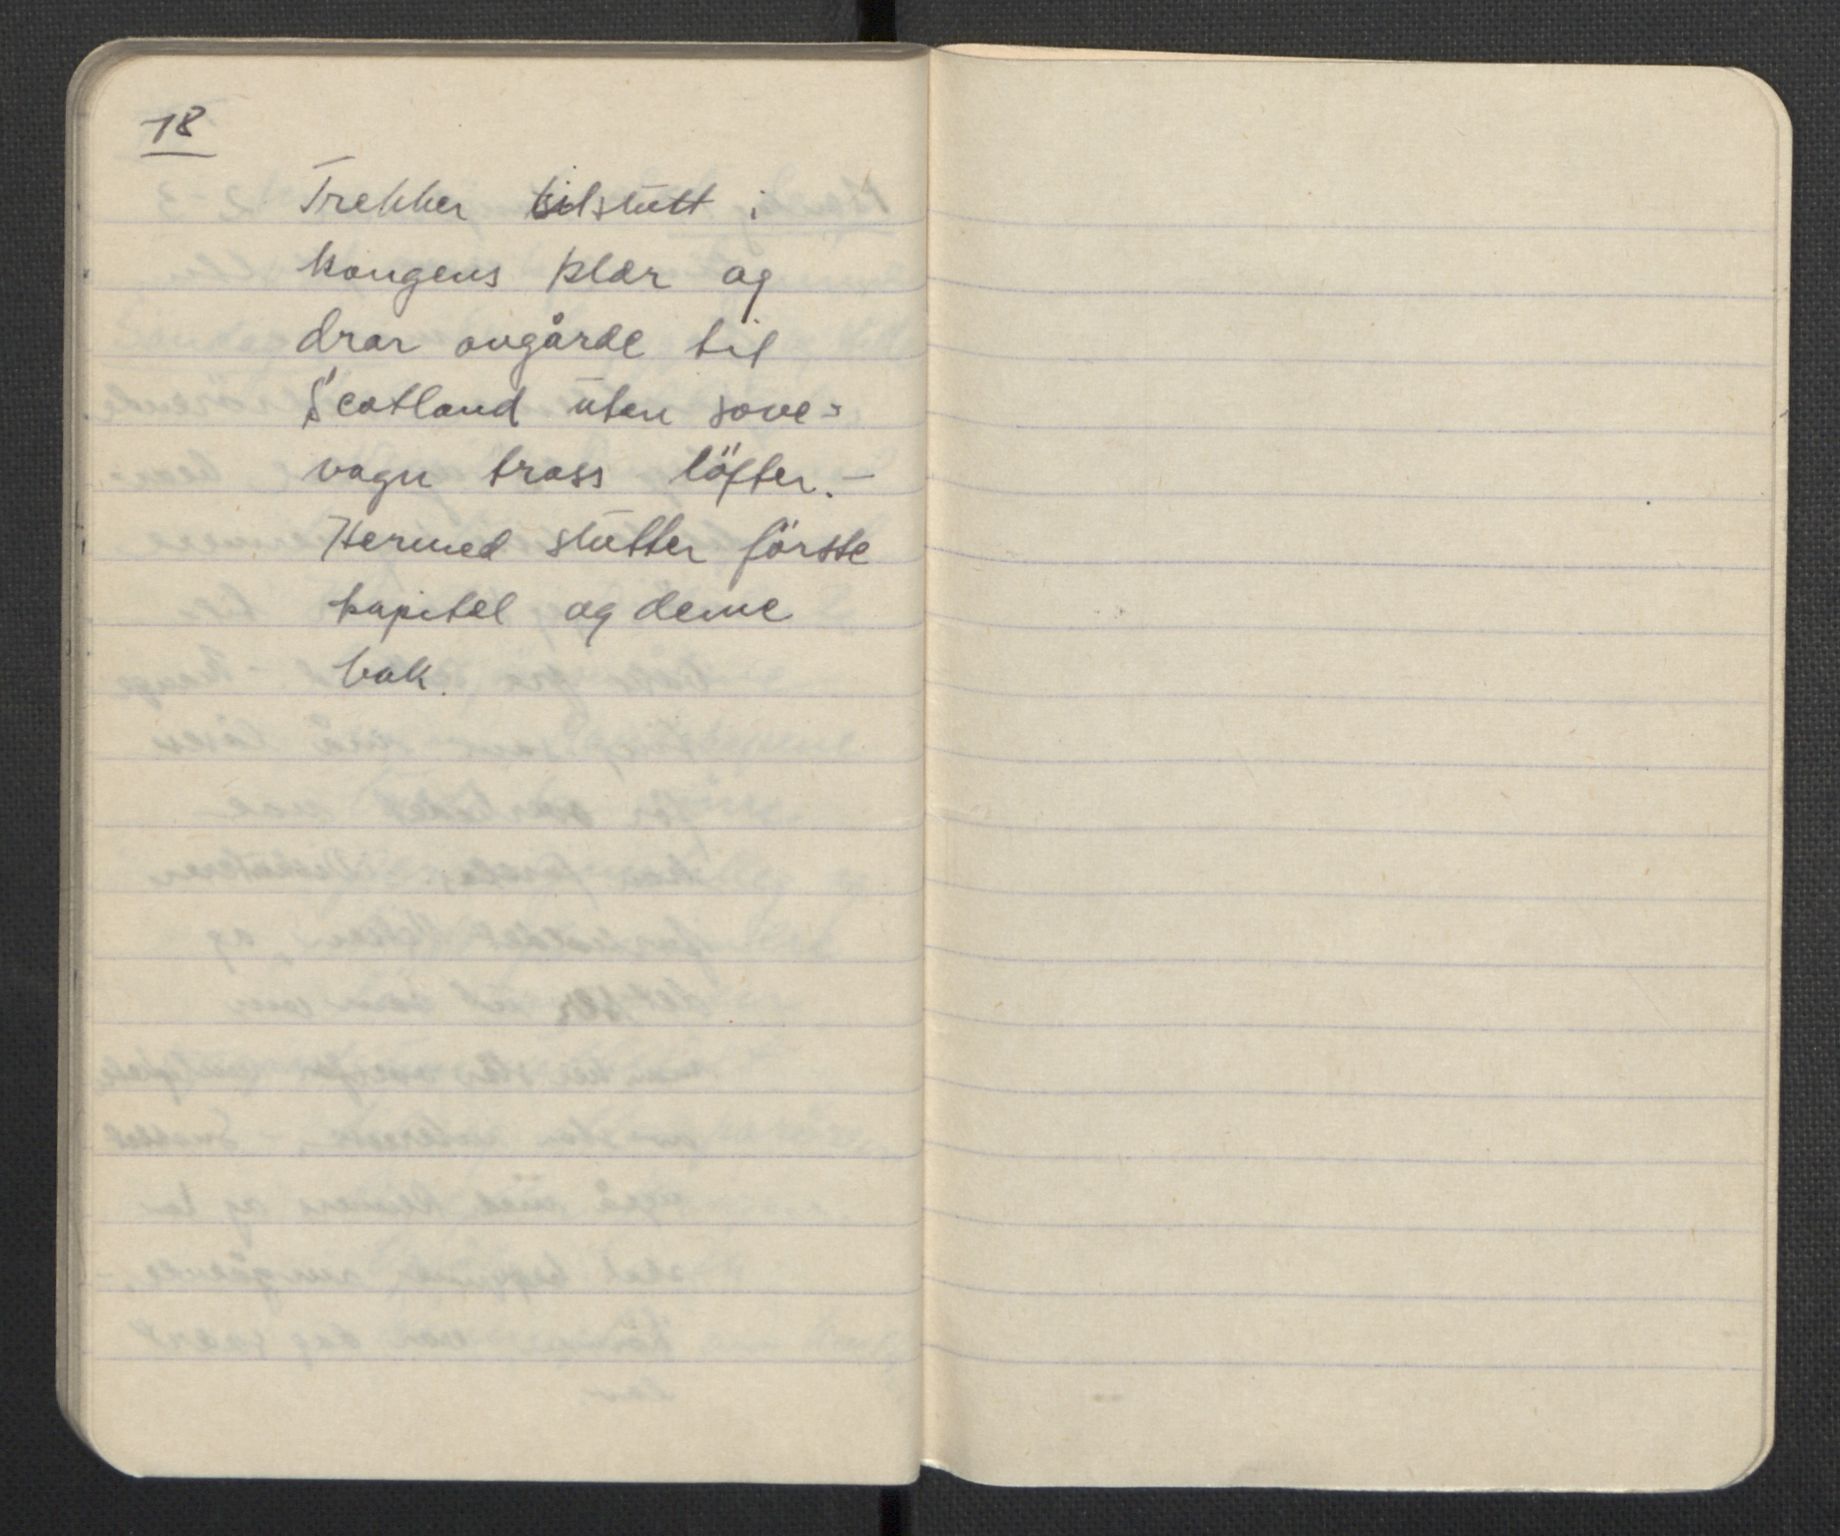 18
Trekker tilslutt i
kongens klær og
drar avgårde til
Scotland uten sove-
vogn tross löfter.-
Hermed slutter förste
kapitel og denne
bok.